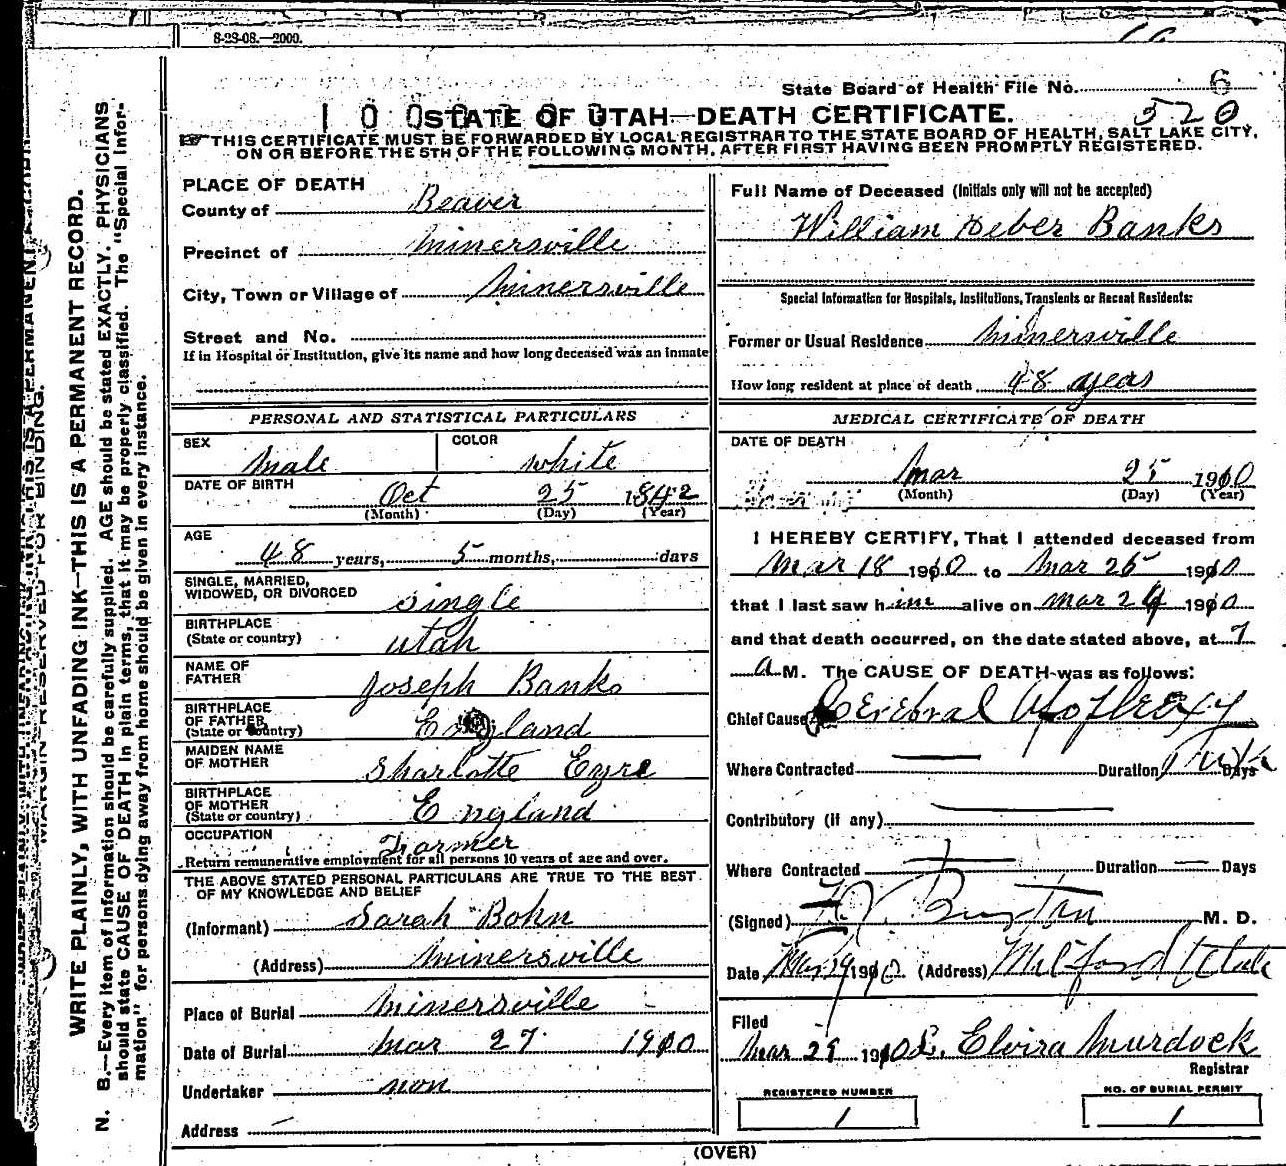 8-23-08.—2000.
State Board of Health File No. 6
520
1 0 0
STATE OF UTAH—DEATH CERTIFICATE.
THIS CERTIFICATE MUST BE FORWARDED BY LOCAL REGISTRAR TO THE STATE BOARD OF HEALTH, SALT LAKE CITY,
ON OR BEFORE THE 5TH OF THE FOLLOWING MONTH, AFTER FIRST HAVING BEEN PROMPTLY REGISTERED.
MARGIN RESERVED FOR BINDING.
WRITE PLAINLY, WITH UNFADING INK—THIS IS A PERMANENT RECORD.
N. B.—Every item of information should be carefully supplied. AGE should be stated EXACTLY. PHYSICIANS
should state CAUSE OF DEATH in plain terms, that it may be properly classified. The "Special Infor-
mation" for persons dying away from home should be given in every instance.
PLACE OF DEATH
County of Beaver
Precinct of Minersville
City, Town or Village of Minersville
Street and No.
If in Hospital or Institution, give its name and how long deceased was an inmate
PERSONAL AND STATISTICAL PARTICULARS
SEX Male COLOR White
DATE OF BIRTH Oct 25 1842
(Month) (Day) (Year)
AGE
48 years, 5 months, days
SINGLE, MARRIED,
WIDOWED, OR DIVORCED Single
BIRTHPLACE
(State or country) Utah
NAME OF
FATHER Joseph Banks
BIRTHPLACE
OF FATHER
(State or country) England
MAIDEN NAME
OF MOTHER Sharlotte Eyre
BIRTHPLACE
OF MOTHER
(State or country) England
OCCUPATION Farmer
Return remunerative employment for all persons 10 years of age and over.
THE ABOVE STATED PERSONAL PARTICULARS ARE TRUE TO THE BEST
OF MY KNOWLEDGE AND BELIEF
(Informant) Sarah Bohn
(Address) Minersville
Place of Burial Minersville
Date of Burial Mar 27 1910
Undertaker non
Address
Full Name of Deceased (Initials only will not be accepted)
William Heber Banks
Special Information for Hospitals, Institutions, Transients or Recent Residents:
Former or Usual Residence Minersville
How long resident at place of death 48 years
MEDICAL CERTIFICATE OF DEATH
DATE OF DEATH
Mar 25 1910
(Month) (Day) (Year)
I HEREBY CERTIFY, That I attended deceased from
Mar 18 1910 to Mar 25 1910
that I last saw him alive on Mar 24 1910
and that death occurred, on the date stated above, at 7
a M. The CAUSE OF DEATH was as follows:
Chief Cause Cerebral Apoplexy
Where Contracted — Duration Days
Contributory (if any) —
Where Contracted — Duration — Days
(Signed) M. D.
Date Mar 29 1910. (Address) Milford Utah
Filed
Mar 29 1910 L. Elvira Murdock
Registrar
REGISTERED NUMBER
1
NO. OF BURIAL PERMIT
1
(OVER)